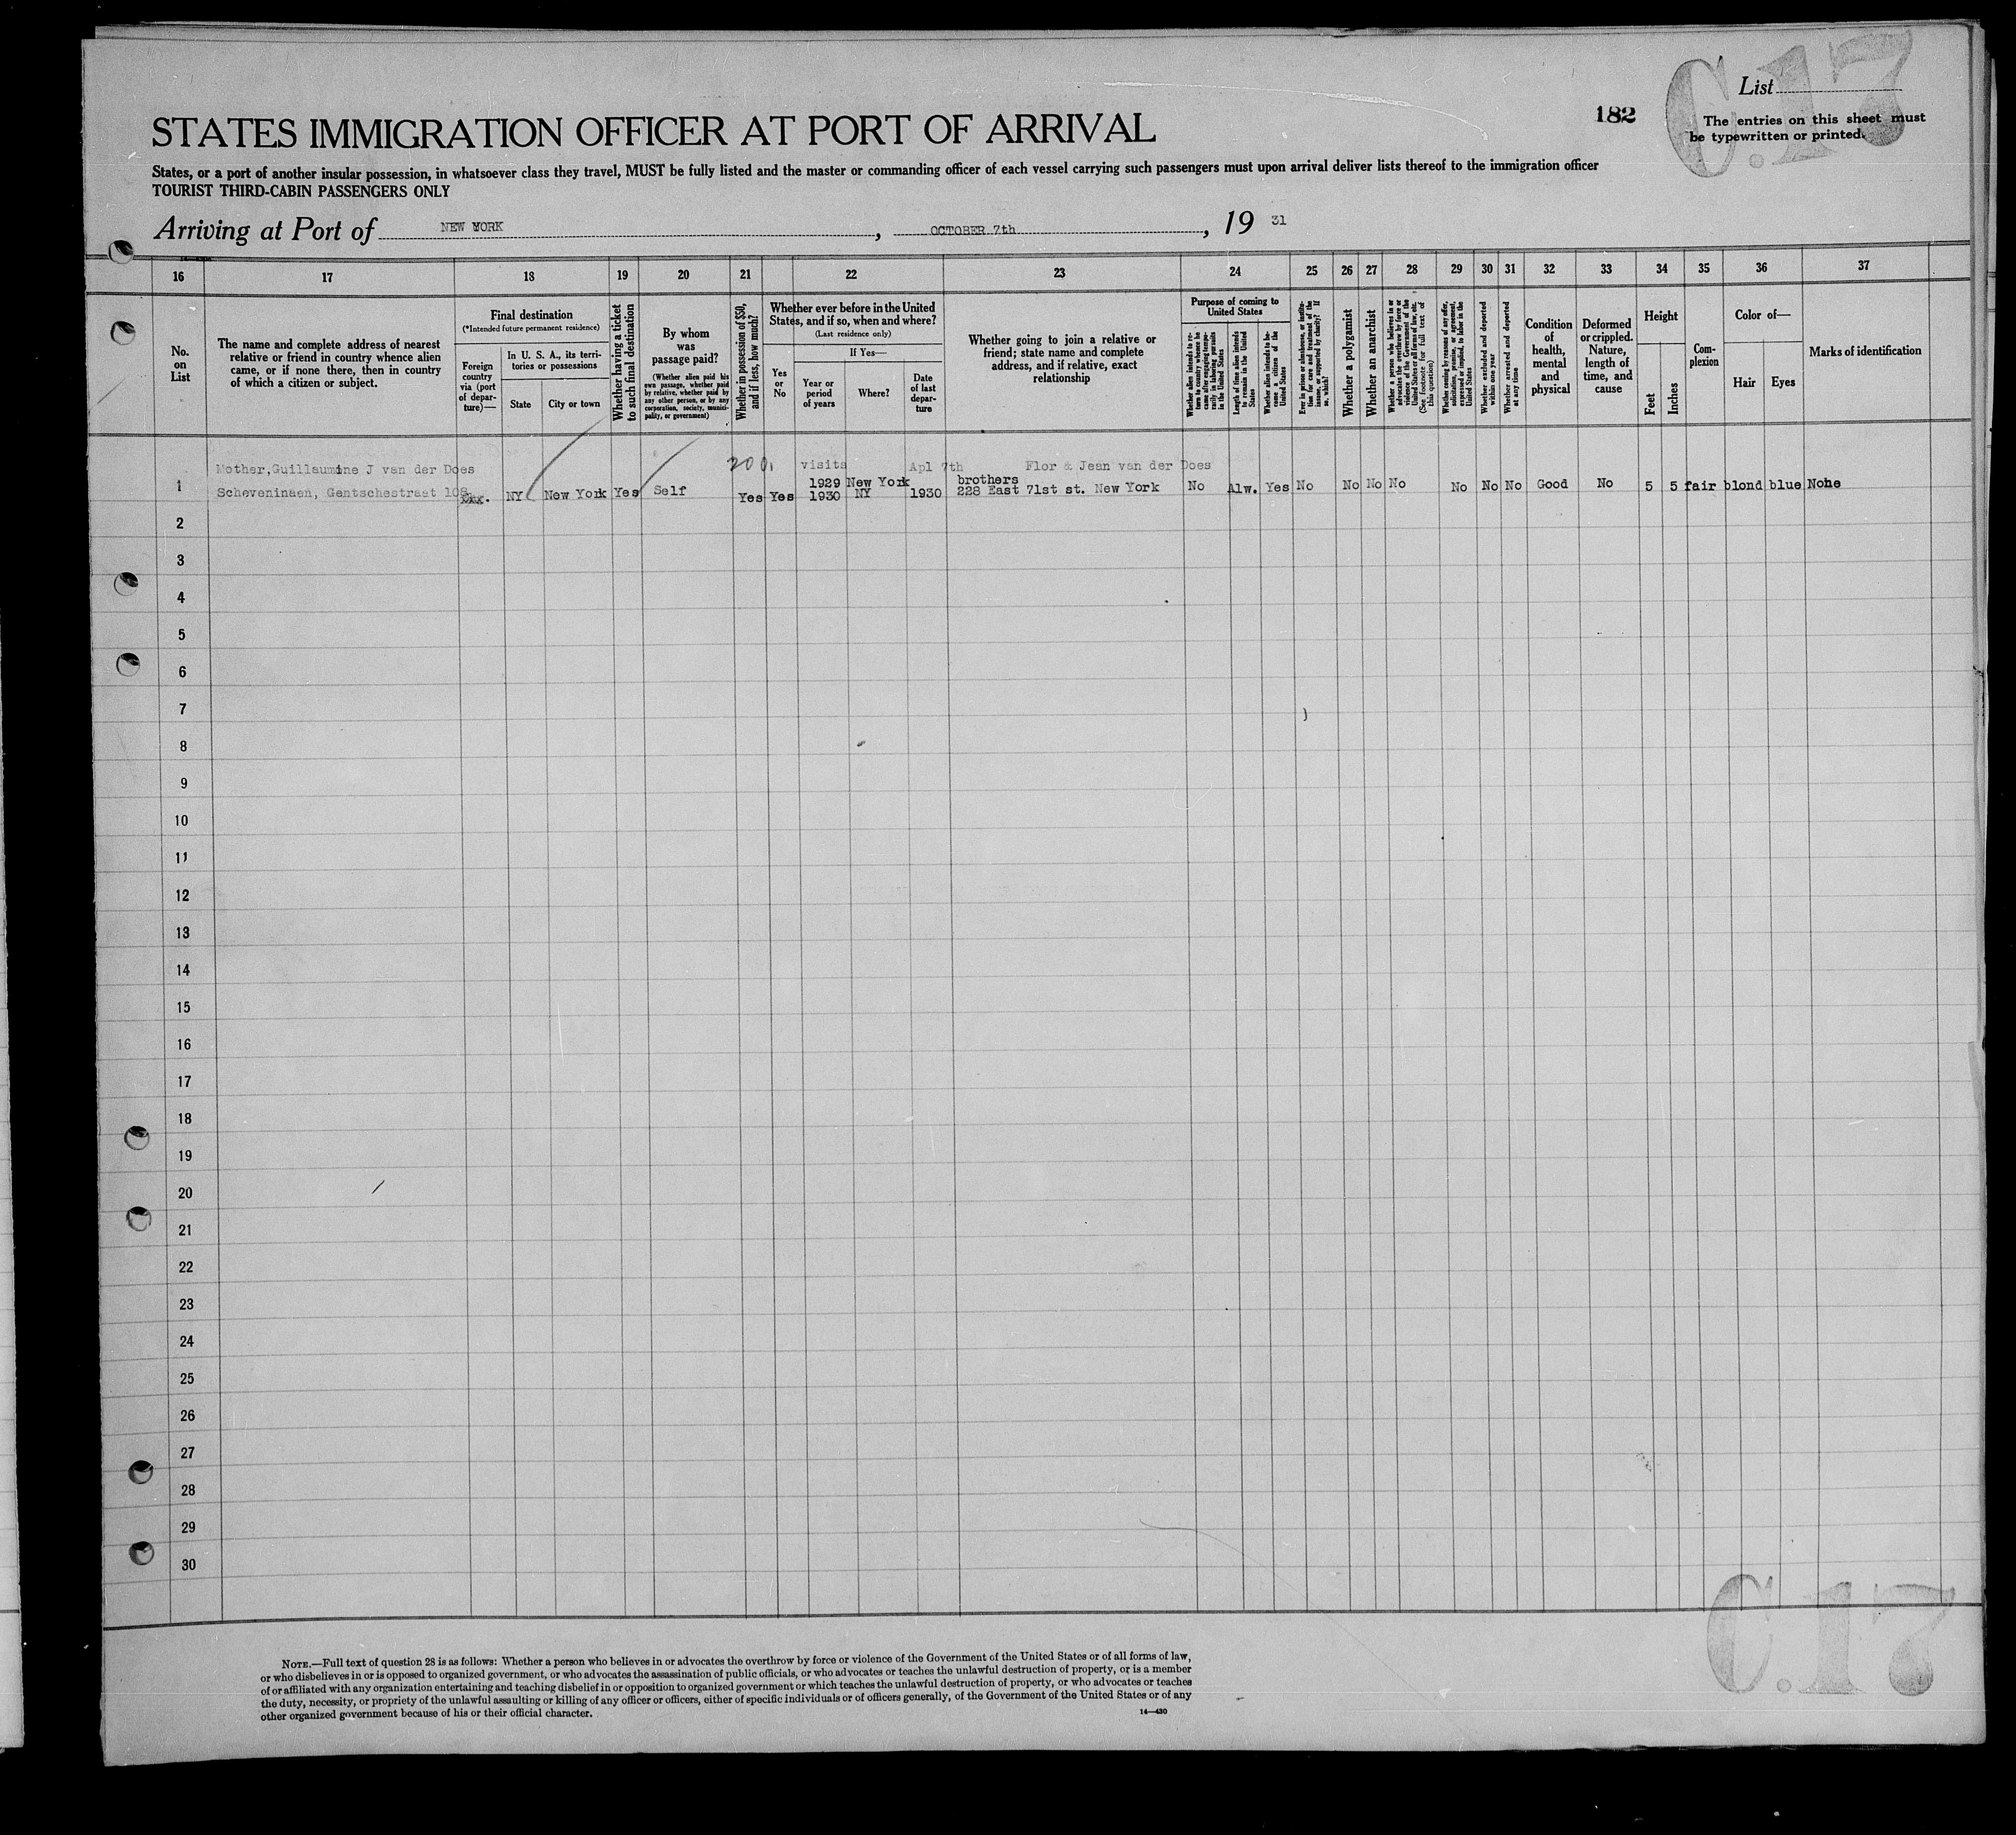 C.17
List
182
The entries on this sheet must
be typewritten or printed.
STATES IMMIGRATION OFFICER AT PORT OF ARRIVAL
States, or a port of another insular possession, in whatsoever class they travel, MUST be fully listed and the master or commanding officer of each vessel carrying such passengers must upon arrival deliver lists thereof to the immigration officer
TOURIST THIRD-CABIN PASSENGERS ONLY
Arriving at Port of NEW YORK, OCTOBER 7th, 19 31
16 17 18 19 20 21 22 23 24 25 26 27 28 29 30 31 32 33 34 35 36 37
No. on List
The name and complete address of nearest
relative or friend in country whence alien
came, or if none there, then in country
of which a citizen or subject.
Final destination
(*Intended future permanent residence)
Foreign country via (port of departure)—
In U. S. A., its territories or possessions
State
City or town
Whether having a ticket to such final destination
By whom was passage paid?
(Whether alien paid his own passage, whether paid by relative, whether paid by any other person, or by any corporation, society, municipality, or government)
Whether in possession of $50, and if less, how much?
Whether ever before in the United
States, and if so, when and where?
(Last residence only)
Yes or No
If Yes—
Year or period of years
Where?
Date of last departure
Whether going to join a relative or
friend; state name and complete
address, and if relative, exact
relationship
Purpose of coming to United States
Whether alien intends to return to country whence he came after engaging temporarily in laboring pursuits in the United States
Length of time alien intends to remain in the United States
Whether alien intends to become a citizen of the United States
Ever in prison or almshouse, or institution for care and treatment of the insane, or supported by charity? If so, which?
Whether a polygamist
Whether an anarchist
Whether a person who believes in or advocates the overthrow by force or violence of the Government of the United States or all forms of law, etc. (See footnote for full text of this question)
Whether coming by reason of any offer, solicitation, promise, or agreement, expressed or implied, to labor in the United States
Whether excluded and deported within one year
Whether arrested and deported at any time
Condition of health, mental and physical
Deformed or crippled. Nature, length of time, and cause
Height
Feet
Inches
Complexion
Color of—
Hair
Eyes
Marks of identification
Mother,Guillaumine J van der Does 200 visits Apl 7th Flor & Jean van der Does
1929 New York brothers
1 Scheveninaen, Gentschestraat 108 NY New York Yes Self Yes Yes 1930 NY 1930 228 East 71st st. New York No Alw. Yes No No No No No No No Good No 5 5 fair blond blue None
2
3
4
5
6
7
8
9
10
11
12
13
14
15
16
17
18
19
20
21
22
23
24
25
26
27
28
29
30
NOTE.—Full text of question 28 is as follows: Whether a person who believes in or advocates the overthrow by force or violence of the Government of the United States or of all forms of law,
or who disbelieves in or is opposed to organized government, or who advocates the assassination of public officials, or who advocates or teaches the unlawful destruction of property, or is a member
of or affiliated with any organization entertaining and teaching disbelief in or opposition to organized government or which teaches the unlawful destruction of property, or who advocates or teaches
the duty, necessity, or propriety of the unlawful assaulting or killing of any officer or officers, either of specific individuals or of officers generally, of the Government of the United States or of any
other organized government because of his or their official character.
14—430
C.17